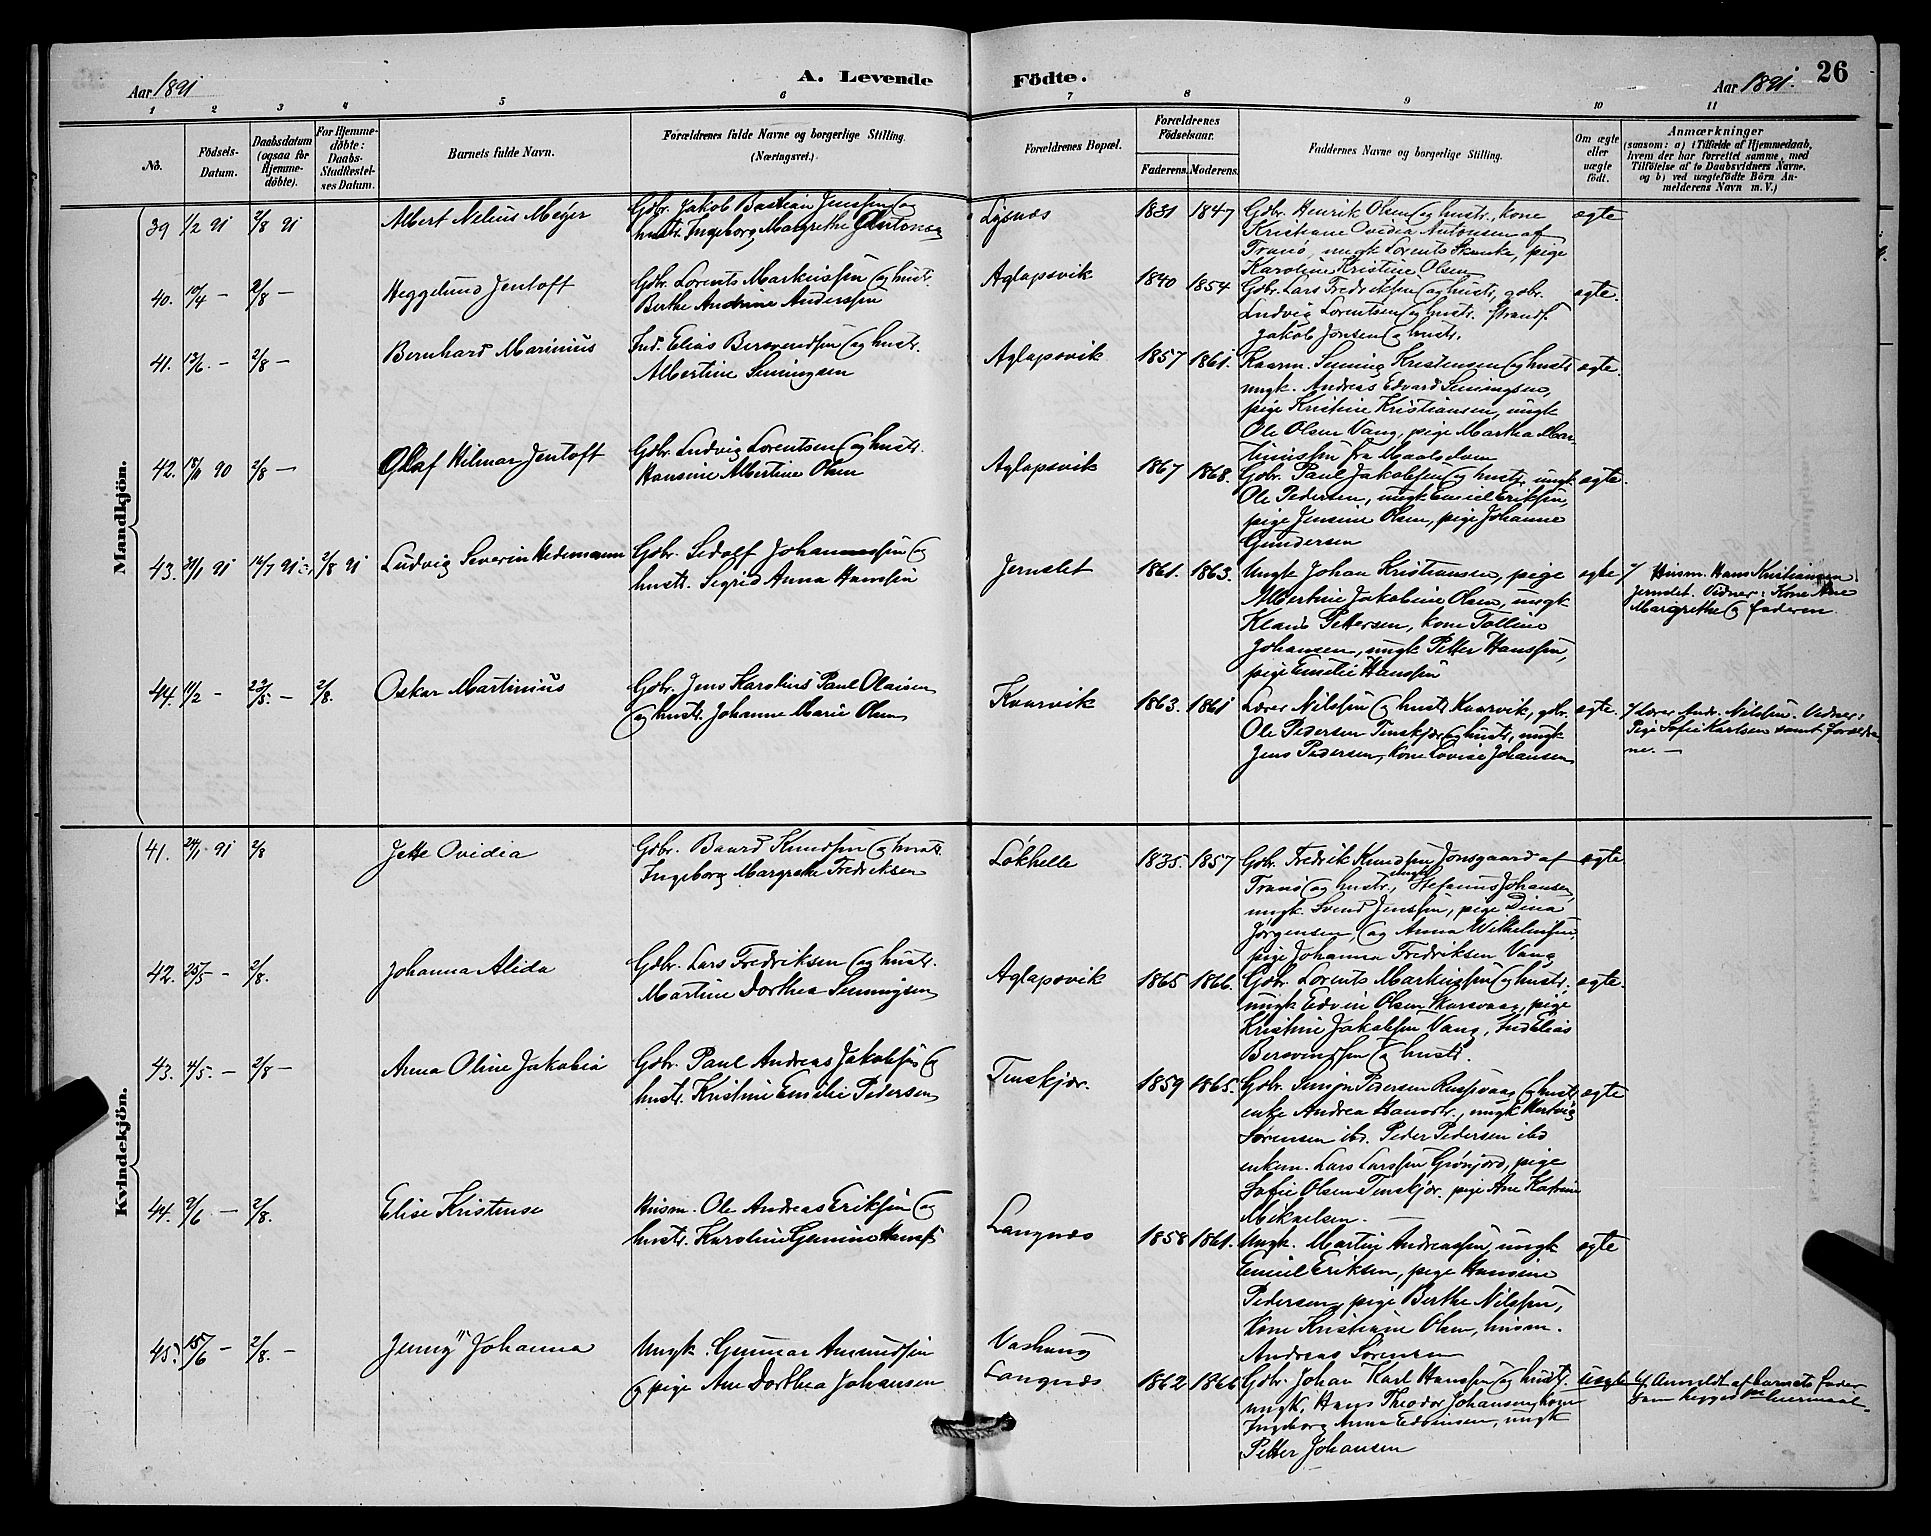 Aar 1891
A. Levende
Födte.
Aar 1891.
26
1 2 3 4 5 6 7 8 9 10 11
No.
Födsels-
Datum.
Daabsdatum
(ogsaa for
Hjemme-
döbte).
For Hjemme-
döbte:
Daabs-
Stadfæstel-
ses Datum.
Barnets fulde Navn.
Forældrenes fulde Navne og borgerlige Stilling.
(Næringsvei.)
Forældrenes Bopæl.
Forældrenes
Födselsaar.
Faderens.
Moderens.
Faddernes Navne og borgerlige Stilling.
Om ægte
eller
uægte
födt.
Anmærkninger
(saasom: a) i Tilfælde af Hjemmedaab,
hvem der har forrettet samme, med
Tilföielse af to Daabsvidners Navne,
og b) ved uægtefödte Börn An-
melderens Navn m. V.)
Mandkjön.
39 1/2 91 2/8 91
Albert Nelius Meyer
Gbr. Jakob Bastian Jenssen og
hustr. Ingeborg Margrethe
Lysnæs
1831 1847
Gbr. Henrik Olsen og hustr., kone
Kristiane Ovidia Antonsen af
Tranö, ungk. Lorents Skanke, pige
Karoline Kristine Olsen
ægte
40. 10/4 — 2/8 —
Heggelund Jentoft
Gbr. Lorents Markussen og hust.
Berthe Andrine Anderssen
Aglapsvik
1840 1854
Gbr. Lars Fredriksen og hustr., gbr.
Ludvig Lorentsen og hustr. Strands.
Jakob Jonsen og hustr.
ægte.
41. 13/6. — 2/8 —
Bernhard Marinius
Ind. Elias Bersvendsen og hustr.
Albertine Simingsen
Aglapsvik
1857 1861.
Kaarm. Seming Kristensen og hustr
ungk. Andreas Edvard Simingsen,
pige Kristine Kristiansen, ungk
Ole Olsen Vang, pige Martha Mar-
tinussen fra Maalsdalen
ægte.
42. 18/11 90 2/8 —
Olaf Hilmar Jentoft
Gbr. Ludvig Lorentsen og hustr.
Hansine Albertine Olsen
Aglapsvik
1867 1868.
Gbr. Paul Jakobsen og hustr., ungk
Ole Pedersen, ungk Emil Eriksen,
pige Jensine Olsen, pige Johanne
Gundersen
ægte.
43. 91 14/7 91 2/8 91
Ludvig Severin Hedemann
Gbr. Sedolf Johannessen og
hustr. Sigrid Anna Hanssen
Jernslet
1861. 1863.
Ungk Johan Kristiansen, pige
Albertine Jakobine Olsen, ungk
Klaus Pettersen, kone Tolline
Johansen, ungk Petter Hanssen,
pige Emilie Hanssen
ægte
Husm. Hans Kristiansen
Jernslet. Vidner: Kone Ane
Margrethe og faderen.
44. 11/2 — 23/5. — 2/8.
Oskar Martinius
Gbr. Jens Karolius Paul Olaisen
og hustr. Johanne Marie Olsen
Kvarvik
1863. 1861
Lærer Nilssen og hustr Kvarvik, gbr.
Ole Pedersen Tinskjær og hustr, ungk
Jens Pedersen, kone Lovise Johansen
ægte.
Lærer Andr. Nilssen. Vidner:
Pige Sofie Karlsen samt forældre-
ne. —
Kvindekjön.
41. 24/1 91 2/8
Jette Ovidia
Gbr. Baard Knudsen og hustr.
Ingeborg Margrethe Fredriksen
Lökhelle
1835. 1857
Gbr Fredrik Knudsen Jonsgaard af
Tranö og hustr., ungk Stefanus Johansen,
ungk. Svend Jenssen, pige Dina
Jörgensen, og Anna Wilhelmsen,
pige Johanna Fredriksen Vang
ægte
42. 25/5 — 2/8.
Johanna Alida
Gbr. Lars Fredriksen og hustr.
Martine Dorthea Simingsen
Aglapsvik
1865 1866.
Gbr. Lorents Markussen og hustr,
ungk Edvin Olsen Skarsvaag, pige
Kristine Jakobsen Vang, Ind Elias
Bersvendsen og hustr.
ægte.
43. 4/5 — 2/8 —
Anna Oline Jakobia
Gbr. Paul Andreas Jakobsen og
hustr. Kristine Emelie Pedersen
Tinskjær.
1859 1865.
Gbr. Simon Pedersen og hustr
enke Andrea Hansdtr., ungk Hertvig
Sörensen ibd. Peder Pedersen ibd
enkem. Lars Larssen Grönjord, pige
Sofie Olsen Tinskjær. pige Ane Katrine
Mikaelsen. —
ægte
44. 9/6 — 2/8.
Elise Kristense
Husm. Ole Andreas Eriksen og
hustr. Karoline Hanss
Langnæs
1858 1861.
Ungk. Martin Andreassen, ungk
Emil Eriksen, pige Hansine
Pedersen, pige Berthe Nilssen,
kone Kristiane Olsen, husm.
Andreas Sörensen
ægte
45. 15/6 — 2/8. —
Jenny Johanna
Ungk. Gunnar Amundsen
og pige Ane Dorthea Johansen
Vashaug
Langnæs
1862 1866
Gbr. Johan Karl Hanssen og hustr.
ungk. Hans Theodor Johansen, kone
Ingeborg Anna Edvinsen, ungk
Petter Johansen
uægte
Anmeldt af barnets fader